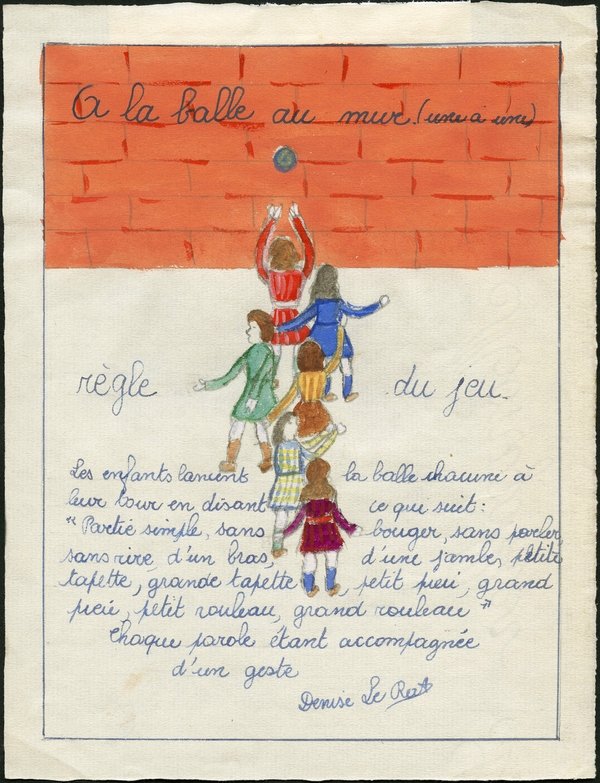 A la balle au mur. (une à une)
règle du jeu.
Les enfants lancent la balle chacune à
leur tour en disant ce qui suit :
"Partie simple, sans bouger, sans parler,
sans rire, d'un bras, d'une jambe, petite
tapette, grande tapette, petit pieu, grand
pieu, petit rouleau, grand rouleau"
Chaque parole étant accompagnée
d'un geste
Denise Le